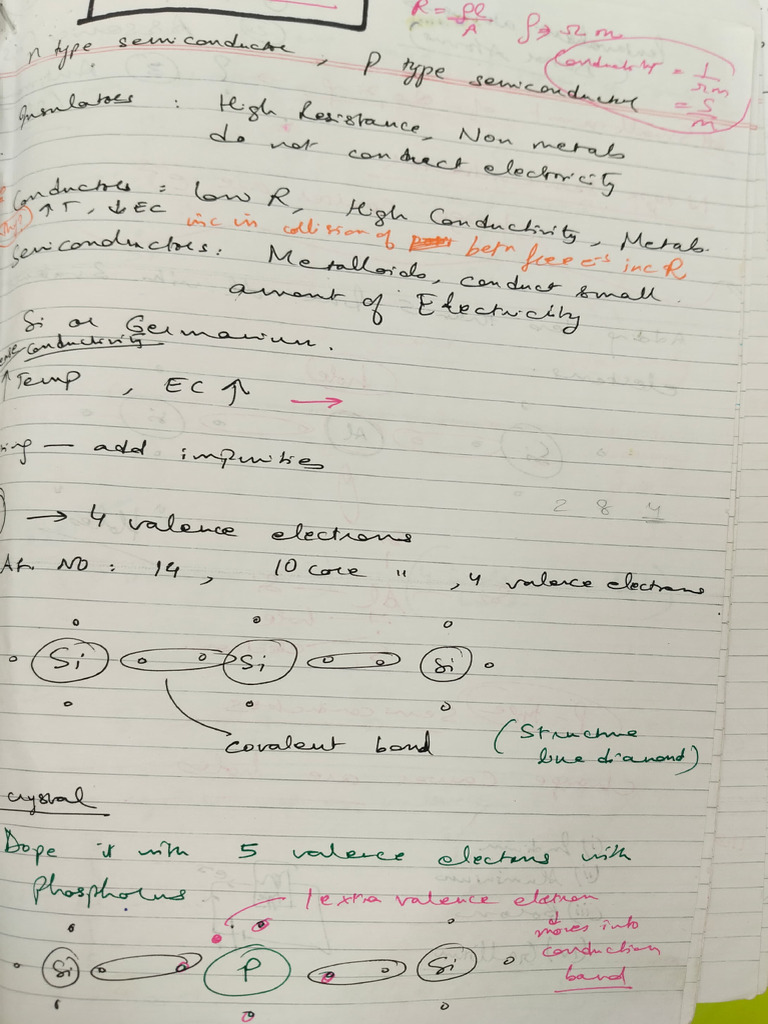 R = ρl/A   ρ → Ω m
n type semiconductor, P type semiconductor
Conductivity = 1/Ωm
= S/m
Insulators : High Resistance, Non metals
do not conduct electricity
Conductors : Low R, High Conductivity, Metals
↑ T, ↓ EC inc in collision of betn free e⁻s inc R
Semiconductors : Metalloids, conduct small
amount of Electricity
Si or Germanium.
conductivity
↑ Temp , EC ↑ →
— add impurities
2 8 4
→ 4 valence electrons
At. No : 14 , 10 core " , 4 valence electrons
Si Si Si
covalent bond
(Structure
like diamond)
crystal
Dope it with 5 valence electrons with
Phosphorus
1 extra valence electron
moves into
conduction
band
Si P Si